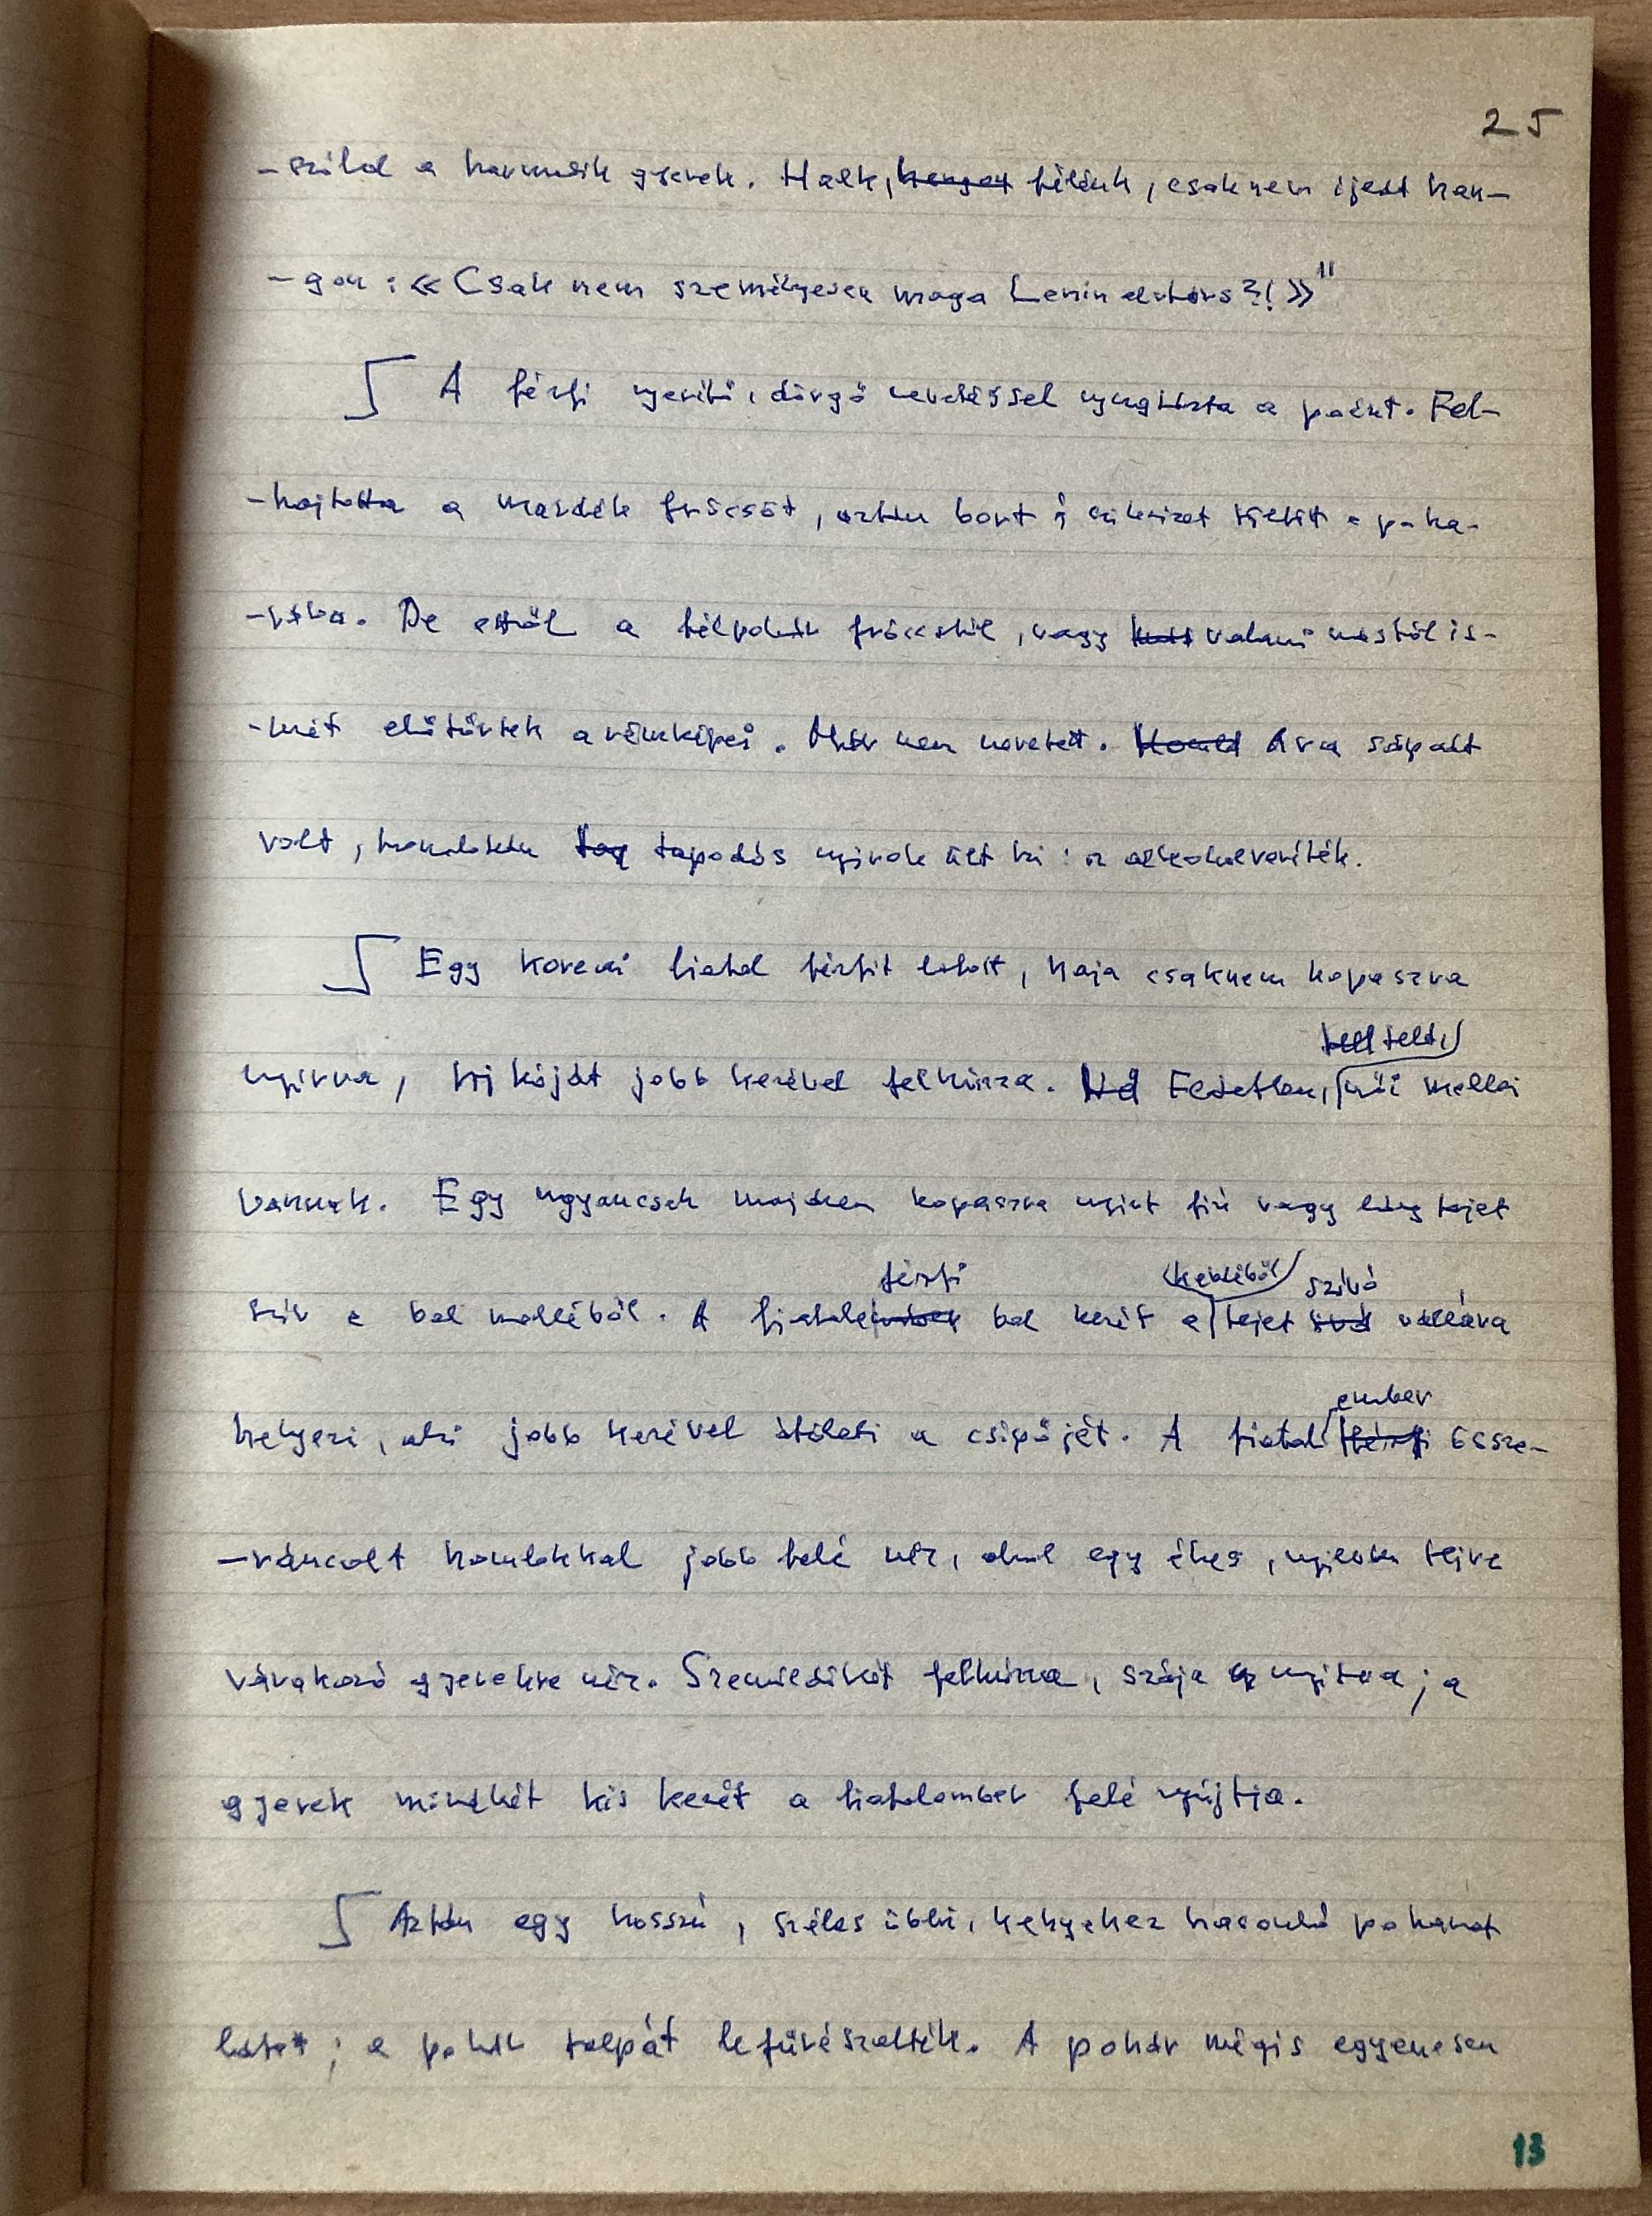 25
-szólal a harmadik gyerek. Halk, hangon félénk, csaknem ijedt han-
-gon: «Csak nem személyesen maga Lenin elvtárs?!»"
A férfi nyerítő, dörgő nevetéssel nyugtázta a poént. Fel-
-hajtotta a maradék fröccsöt, aztán bort és szikvizet töltött a poha-
-rába. De ettől a félpohár fröccstől, vagy valami mástól is-
-mét előtörtek a rémképei. Már nem nevetett. Arca sápadt
volt, homlokán tag tapadós nyirok ült ki: az alkoholveríték.
Egy koreai fiatal férfit látott, haja csaknem kopaszra
tell telt,
nyírva, bal karját jobb kezével felhúzza. Fedetlen, női mellei
vannak. Egy ugyancsak majdnem kopaszra nyírt fiú vagy lány tejet
férfi kebléből szívó
szív a bal melléből. A fiatal ember bal kezét a tejet vállára
ember
helyezi, aki jobb kezével átöleli a csípőjét. A fiatal férfi össze-
-ráncolt homlokkal jobb felé néz, ahol egy éhes, nyilván tejre
várakozó gyerekre néz. Szemöldökét felhúzza, szája nyitva; a
gyerek mindkét kis kezét a fiatalember felé nyújtja.
Aztán egy hosszú, széles öblű, kehelyhez hasonló poharat
látott; a pohár talpát lefűrészelték. A pohár mégis egyenesen
13